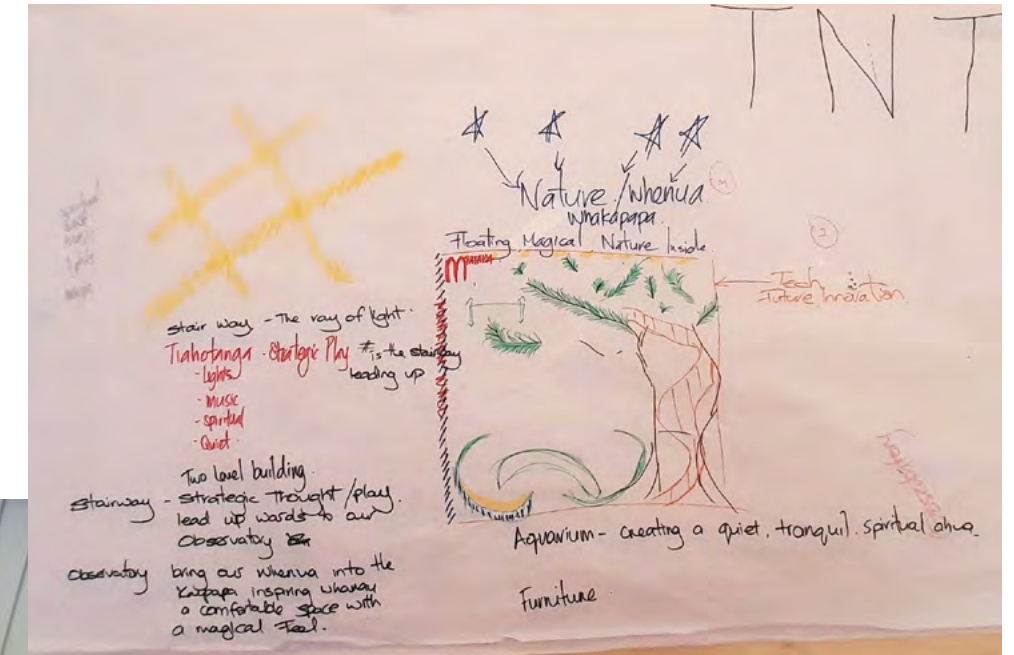 TNT
Nature / Whenua
Whakapapa.
Floating Magical Nature Inside.
Tech
Future Innovation
2
stair way - The ray of light.
Tiahotanga - Strategic Play * is the stairway
leading up
- Lights
- music
- spiritual
- Quiet.
Two level building.
Stairway - strategic thought / play.
lead up wards to our
Observatory
Observatory bring our whenua into the
Kaupapa inspiring whanau
a comfortable space with
a magical Feel.
Aquarium - creating a quiet, tranquil, spiritual ahua.
Furniture.